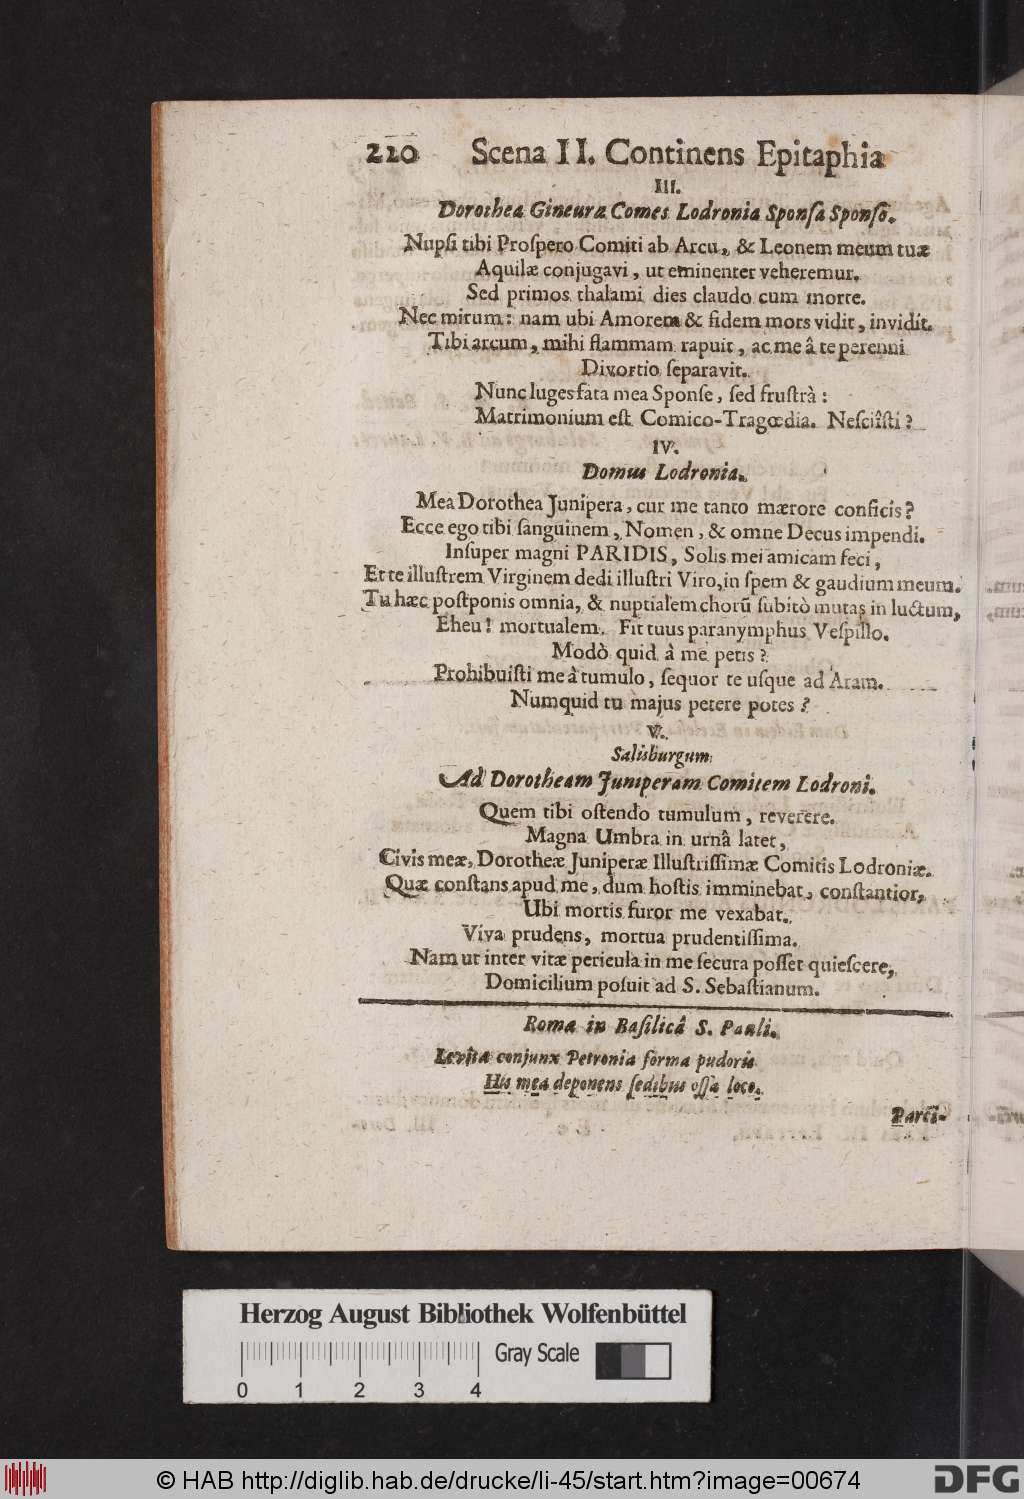 220 Scena II. Continens Epitaphia
III.
Dorothea Gineura Comes Lodronia Sponſa Sponſo.
Nupſi tibi Proſpero Comiti ab Arcu, & Leonem meum tuæ
Aquilæ conjugavi, ut eminenter veheremur.
Sed primos thalami dies claudo cum morte.
Nec mirum: nam ubi Amorem & fidem mors vidit, invidit.
Tibi arcum, mihi flammam rapuit, ac me â te perenni
Divortio ſeparavit.
Nunc luges fata mea Sponſe, ſed fruſtrà:
Matrimonium eſt Comico-Tragœdia. Neſciîſti?
IV.
Domus Lodronia.
Mea Dorothea Junipera, cur me tanto mærore conficis?
Ecce ego tibi ſanguinem, Nomen, & omne Decus impendi.
Inſuper magni PARIDIS, Solis mei amicam feci,
Et te illuſtrem Virginem dedi illuſtri Viro, in ſpem & gaudium meum.
Tu hæc poſtponis omnia, & nuptialem chorũ ſubitò mutas in luctum,
Eheu! mortualem. Fit tuus paranymphus Veſpillo.
Modò quid à me petis?
Prohibuiſti me â tumulo, ſequor te uſque ad Aram.
Numquid tu majus petere potes?
V.
Salisburgum
Ad Dorotheam Juniperam Comitem Lodroni.
Quem tibi oſtendo tumulum, reverere.
Magna Umbra in urnâ latet,
Civis meæ, Dorotheæ Juniperæ Illuſtriſſimæ Comitis Lodroniæ.
Quæ conſtans apud me, dum hoſtis imminebat, conſtantior,
Ubi mortis furor me vexabat.
Viva prudens, mortua prudentiſſima.
Nam ut inter vitæ pericula in me ſecura poſſet quieſcere,
Domicilium poſuit ad S. Sebaſtianum.
Roma in Baſilicâ S. Pauli.
Levita conjunx Petronia forma pudoris
His mea deponens ſedibus oſſa loco.
Parci-
Herzog August Bibliothek Wolfenbüttel
Gray Scale
0 1 2 3 4
© HAB http://diglib.hab.de/drucke/li-45/start.htm?image=00674
DFG